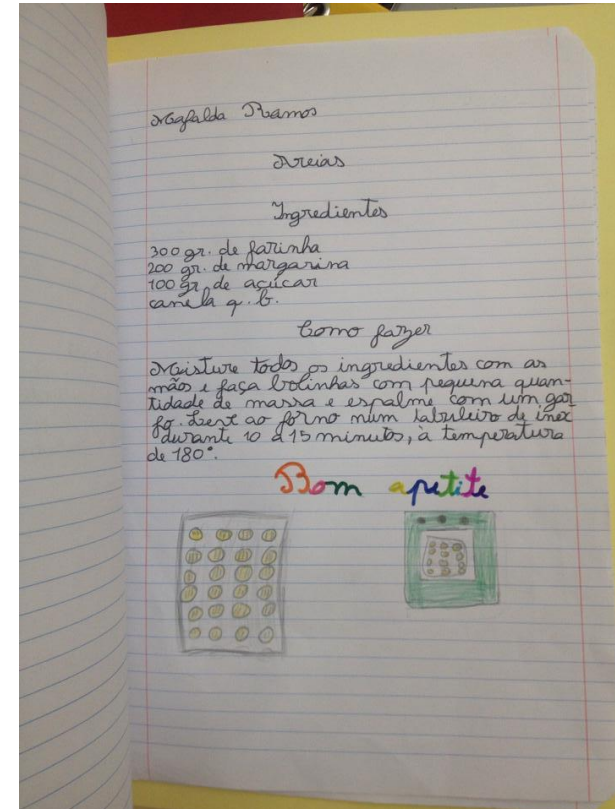 Mafalda Ramos
Areias
Ingredientes
300 gr. de farinha
200 gr. de margarina
100 gr. de açúcar
canela q. b.
Como fazer
Misture todos os ingredientes com as
mãos e faça bolinhas com pequena quan-
tidade de massa e espalme com um gar
fo. Leve ao forno num tabuleiro de inox
durante 10 a 15 minutos, à temperatura
de 180°.
Bom apetite